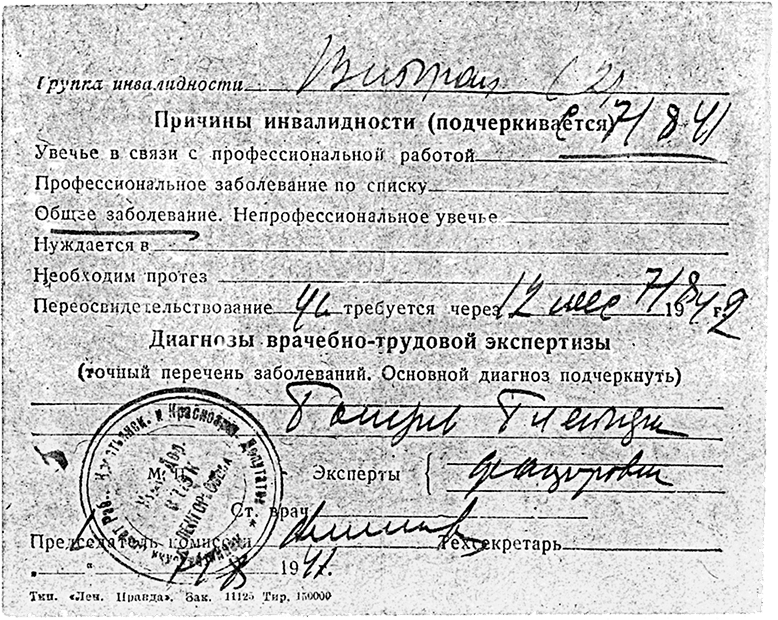 Группа инвалидности Вторая (2)
Причины инвалидности (подчеркивается) с 7/8-41
Увечье в связи с профессиональной работой
Профессиональное заболевание по списку
Общее заболевание. Непрофессиональное увечье
Нуждается в
Необходим протез
Переосвидетельствование требуется через 12 мес 7/8 1942 г.
Диагнозы врачебно-трудовой экспертизы
(точный перечень заболеваний. Основной диагноз подчеркнуть)
Раб., Крестьянск. и Красноарм. Депутатов
Эксперты
Ст. врач
Председатель комиссии Техсекретарь
7/8 1941.
Тип. «Лен. Правда». Зак. 11125 Тир. 150000